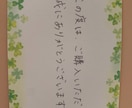 この度は ご購入いただ
誠にありがとうございます